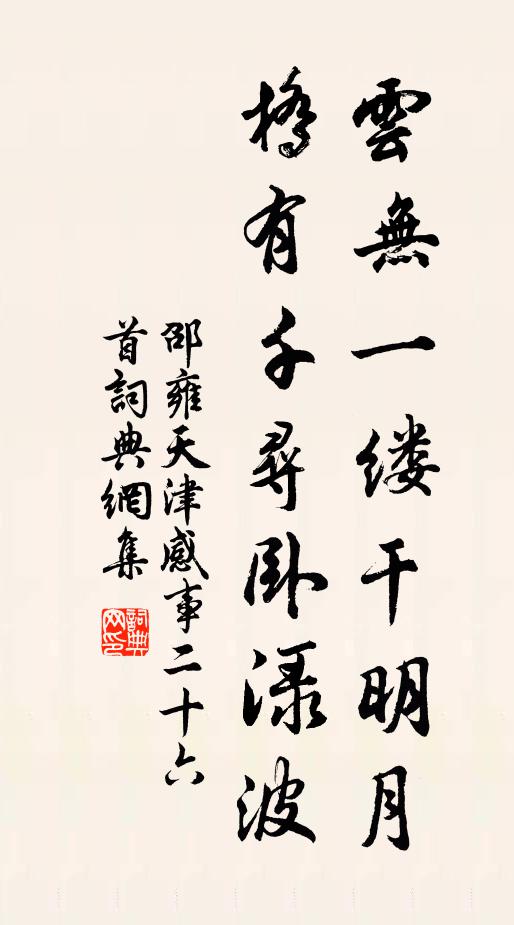 雲無一缕干明月
橋有千尋卧渌波
邵雍天津感事二十六
首詞典網集
詞典
网印